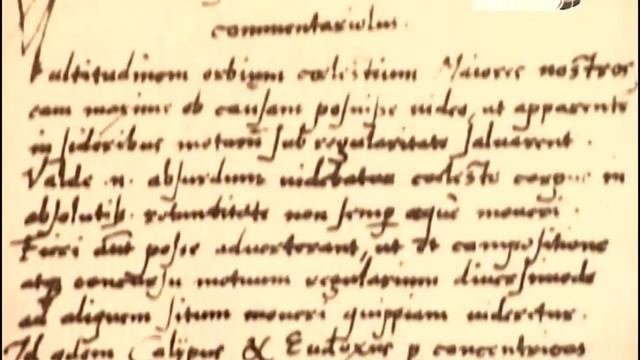 commentariolus.
ultitudinem orbium cœlestium Maiores nostros
eam maxime ob causam posuisse video, ut apparentē
in sideribus motum sub regularitate salvarent.
Valde .n. absurdum videbatur cœleste corpus in
absolutiss. rotunditate non semp æque moveri.
Fieri aūt posse adverterant, ut et compositione
atq concursu motuum regularium diversimode
ad aliquem situm moveri quippiam videretur.
Id Calippus & Eudoxus p concentricos